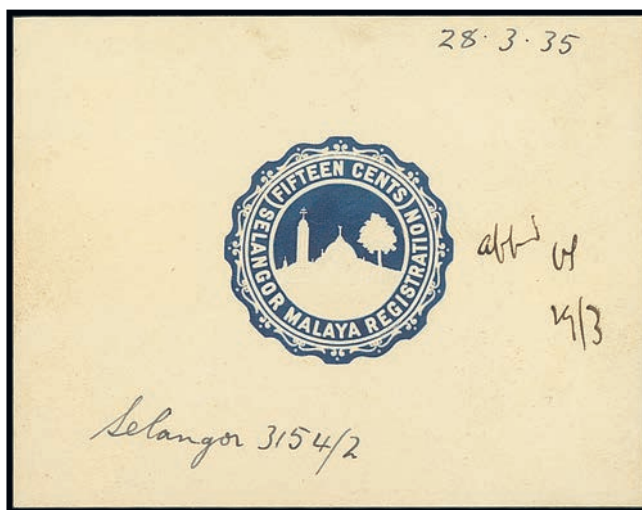 28·3·35
(FIFTEEN CENTS)
SELANGOR MALAYA REGISTRATION
appd
29/3
Selangor 3154/2